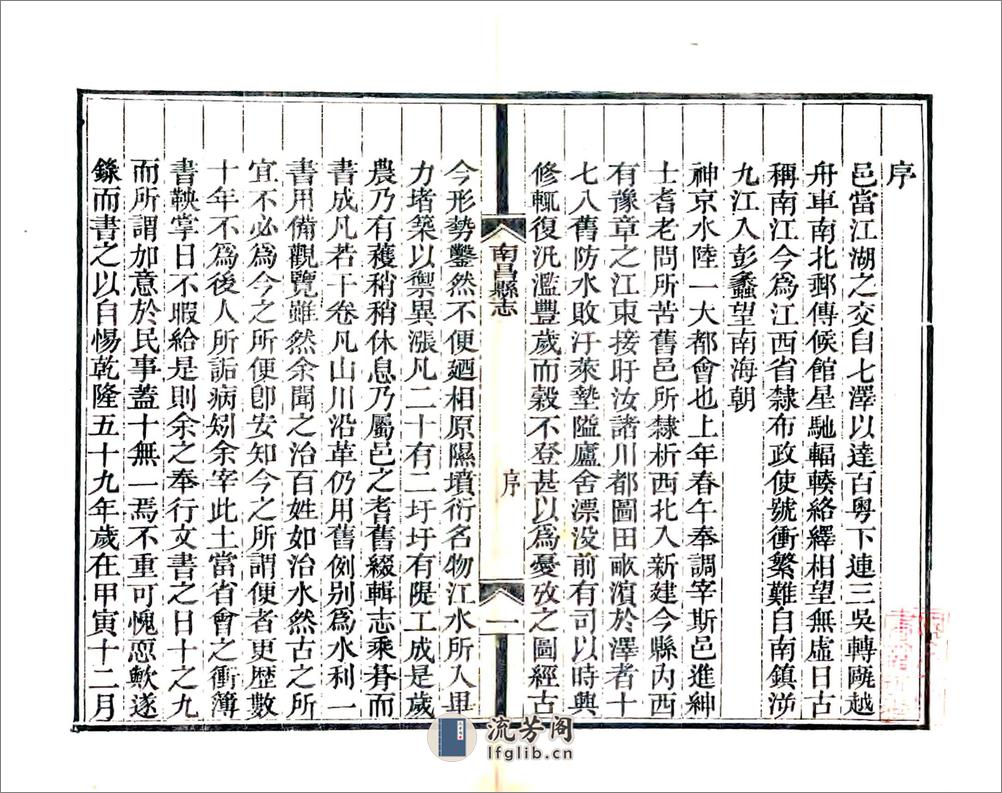 序
邑當江湖之交自七澤以達百粵下連三吳轉陇越
舟車南北郵傳候館星馳輻輳絡繹相望無虛日古
稱南江今為江西省隸布政使號衝繁難自南鎮泝
九江入彭蠡望南海朝
神京水陸一大都會也上年春午奉調宰斯邑進紳
士耆老問所苦舊邑所隸析西北入新建今縣內西
有豫章之江東接盱汝諸川都圖田畝濱於澤者十
七八舊防水敗汙萊墊隘廬舍漂没前有司以時興
修輒復汎濫豐歲而穀不登甚以為憂攷之圖經古
南昌縣志
序
一
今形勢鑿然不便廼相原隰墳衍名物江水所入畀
力堵築以禦異漲凡二十有二圩圩有隄工成是歲
農乃有穫稍稍休息乃屬邑之耆舊綴輯志乘朞而
書成凡若干卷凡山川沿革仍用舊例别為水利一
書用備觀覽雖然余聞之治百姓如治水然古之所
宜不必為今之所便卽安知今之所謂便者更歷數
十年不為後人所詬病矧余宰此土當省會之衝簿
書鞅掌日不暇給是則余之奉行文書之日十之九
而所謂加意於民事蓋十無一焉不重可愧恧歟遂
錄而書之以自惕乾隆五十九年歲在甲寅十二月
流芳阁
lfglib.cn